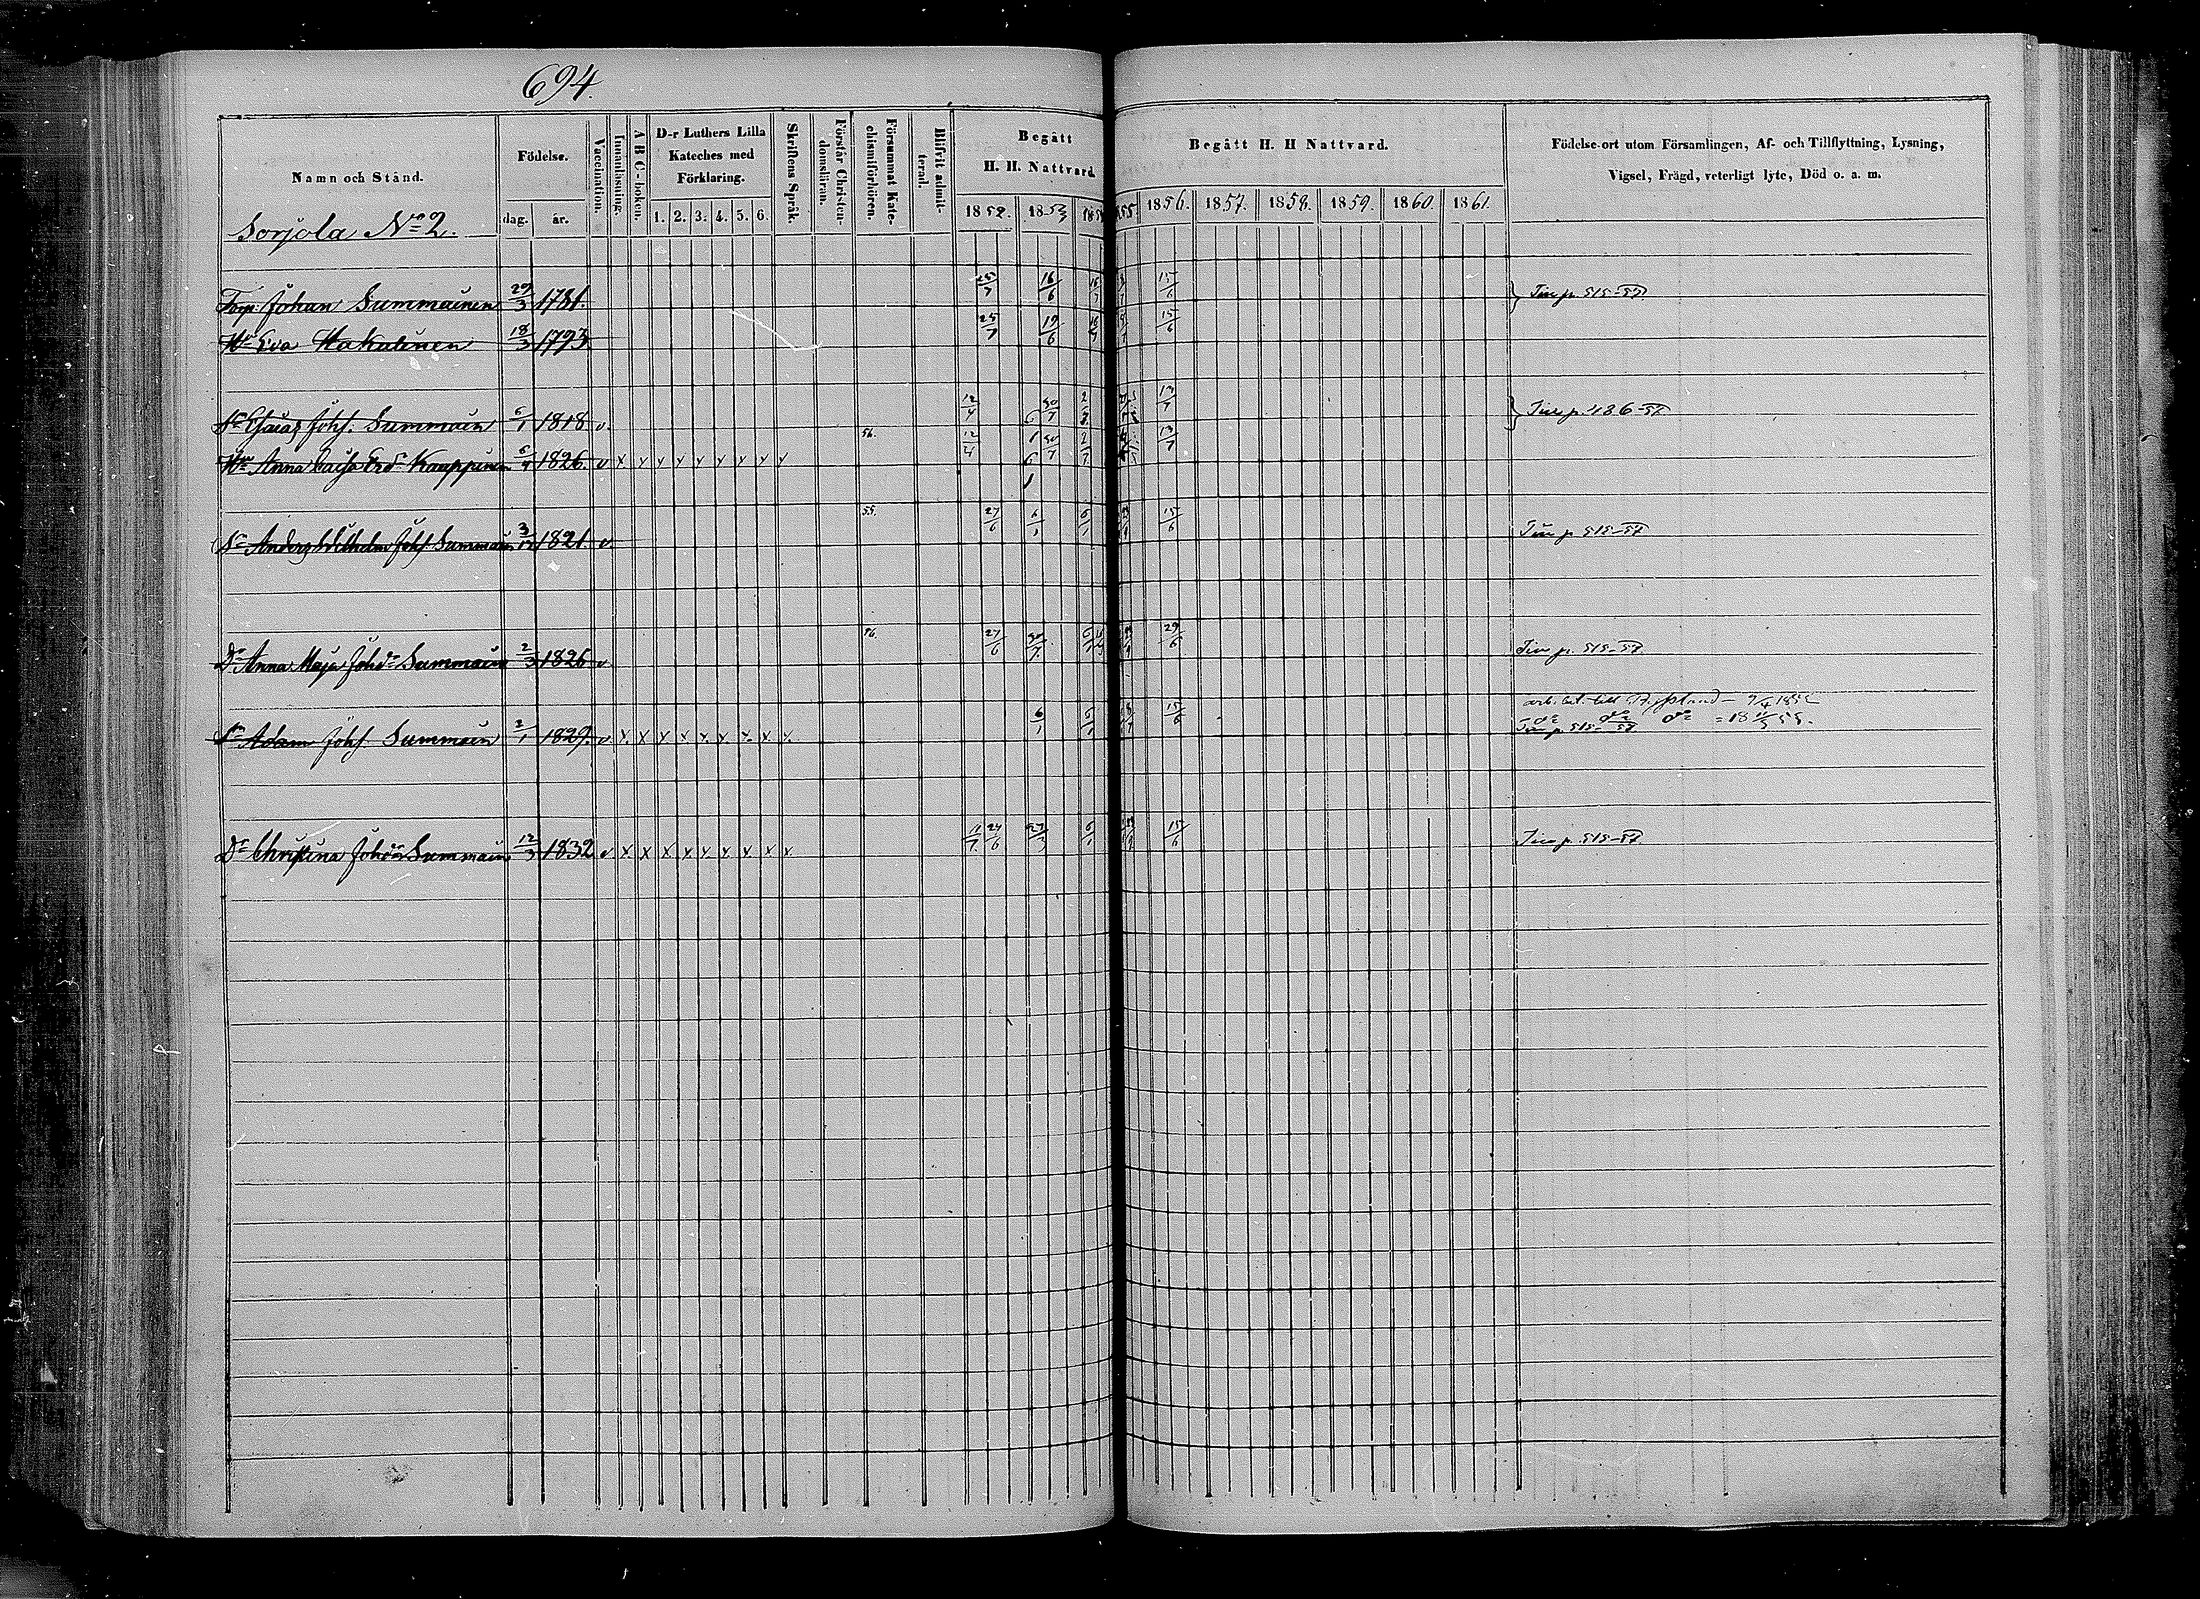 694.
Namn och Stånd.
Födelse.
dag. år.
Vaccination.
Innanläsning.
A B C-boken.
D-r Luthers Lilla
Kateches med
Förklaring.
1. 2. 3. 4. 5. 6.
Skriftens Språk.
Förstår Christen-
domsläran.
Försummat Kate-
chismiförhören.
Blifvit admit-
terad.
Begått
H. H. Nattvard.
1852. 1853 185
Begått H. H Nattvard.
55. 1856. 1857. 1858. 1859. 1860. 1861.
Födelse-ort utom Församlingen, Af- och Tillflyttning, Lysning,
Vigsel, Frägd, veterligt lyte, Död o. a. m.
Sorjola No 2.
Torp. Johan Summainen 29/3 1781. 25/7 16/6 15/6 p. 515-57
Hu Eva Hakulinen 18/3 1793. 25/7 19/6 15/6
Sn Esaias Johs. Summain 6/1 1818 v. 12/4 30/7 13/7 p. 186-57
Hu Anna Caisa Kauppinen 6/4 1826. v x x x x x x x x x 56. 12/4 30/7 2/7 13/7
Sn Anders Wilhelm Johs Summain 3/12 1821. v. 55. 27/6 6/1 6/1 15/6 p. 515-57
Dr Anna Maja Johdr Summain 2/3 1826 v 56. 27/6 30/7 29/6 p. 515-57.
Sn Adam Johs. Summain 2/1 1829. v x x x x x x x x x 6/1 6/1 15/6 arb. bet. till Ryssland 9/4 1852
p. 515-57
Dr Christina Johdr Summain 12/3 1832 v x x x x x x x x x 11/7 24/6 27/3 6/1 15/6 p. 515-57.